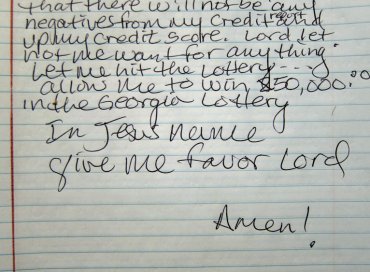 that there will not be any
negatives from my credit report and
up my credit score. Lord let
not me want for anything.
Let me hit the lottery----
allow me to win $50,000.00
in the Georgia Lottery
In Jesus name
give me favor Lord
Amen!